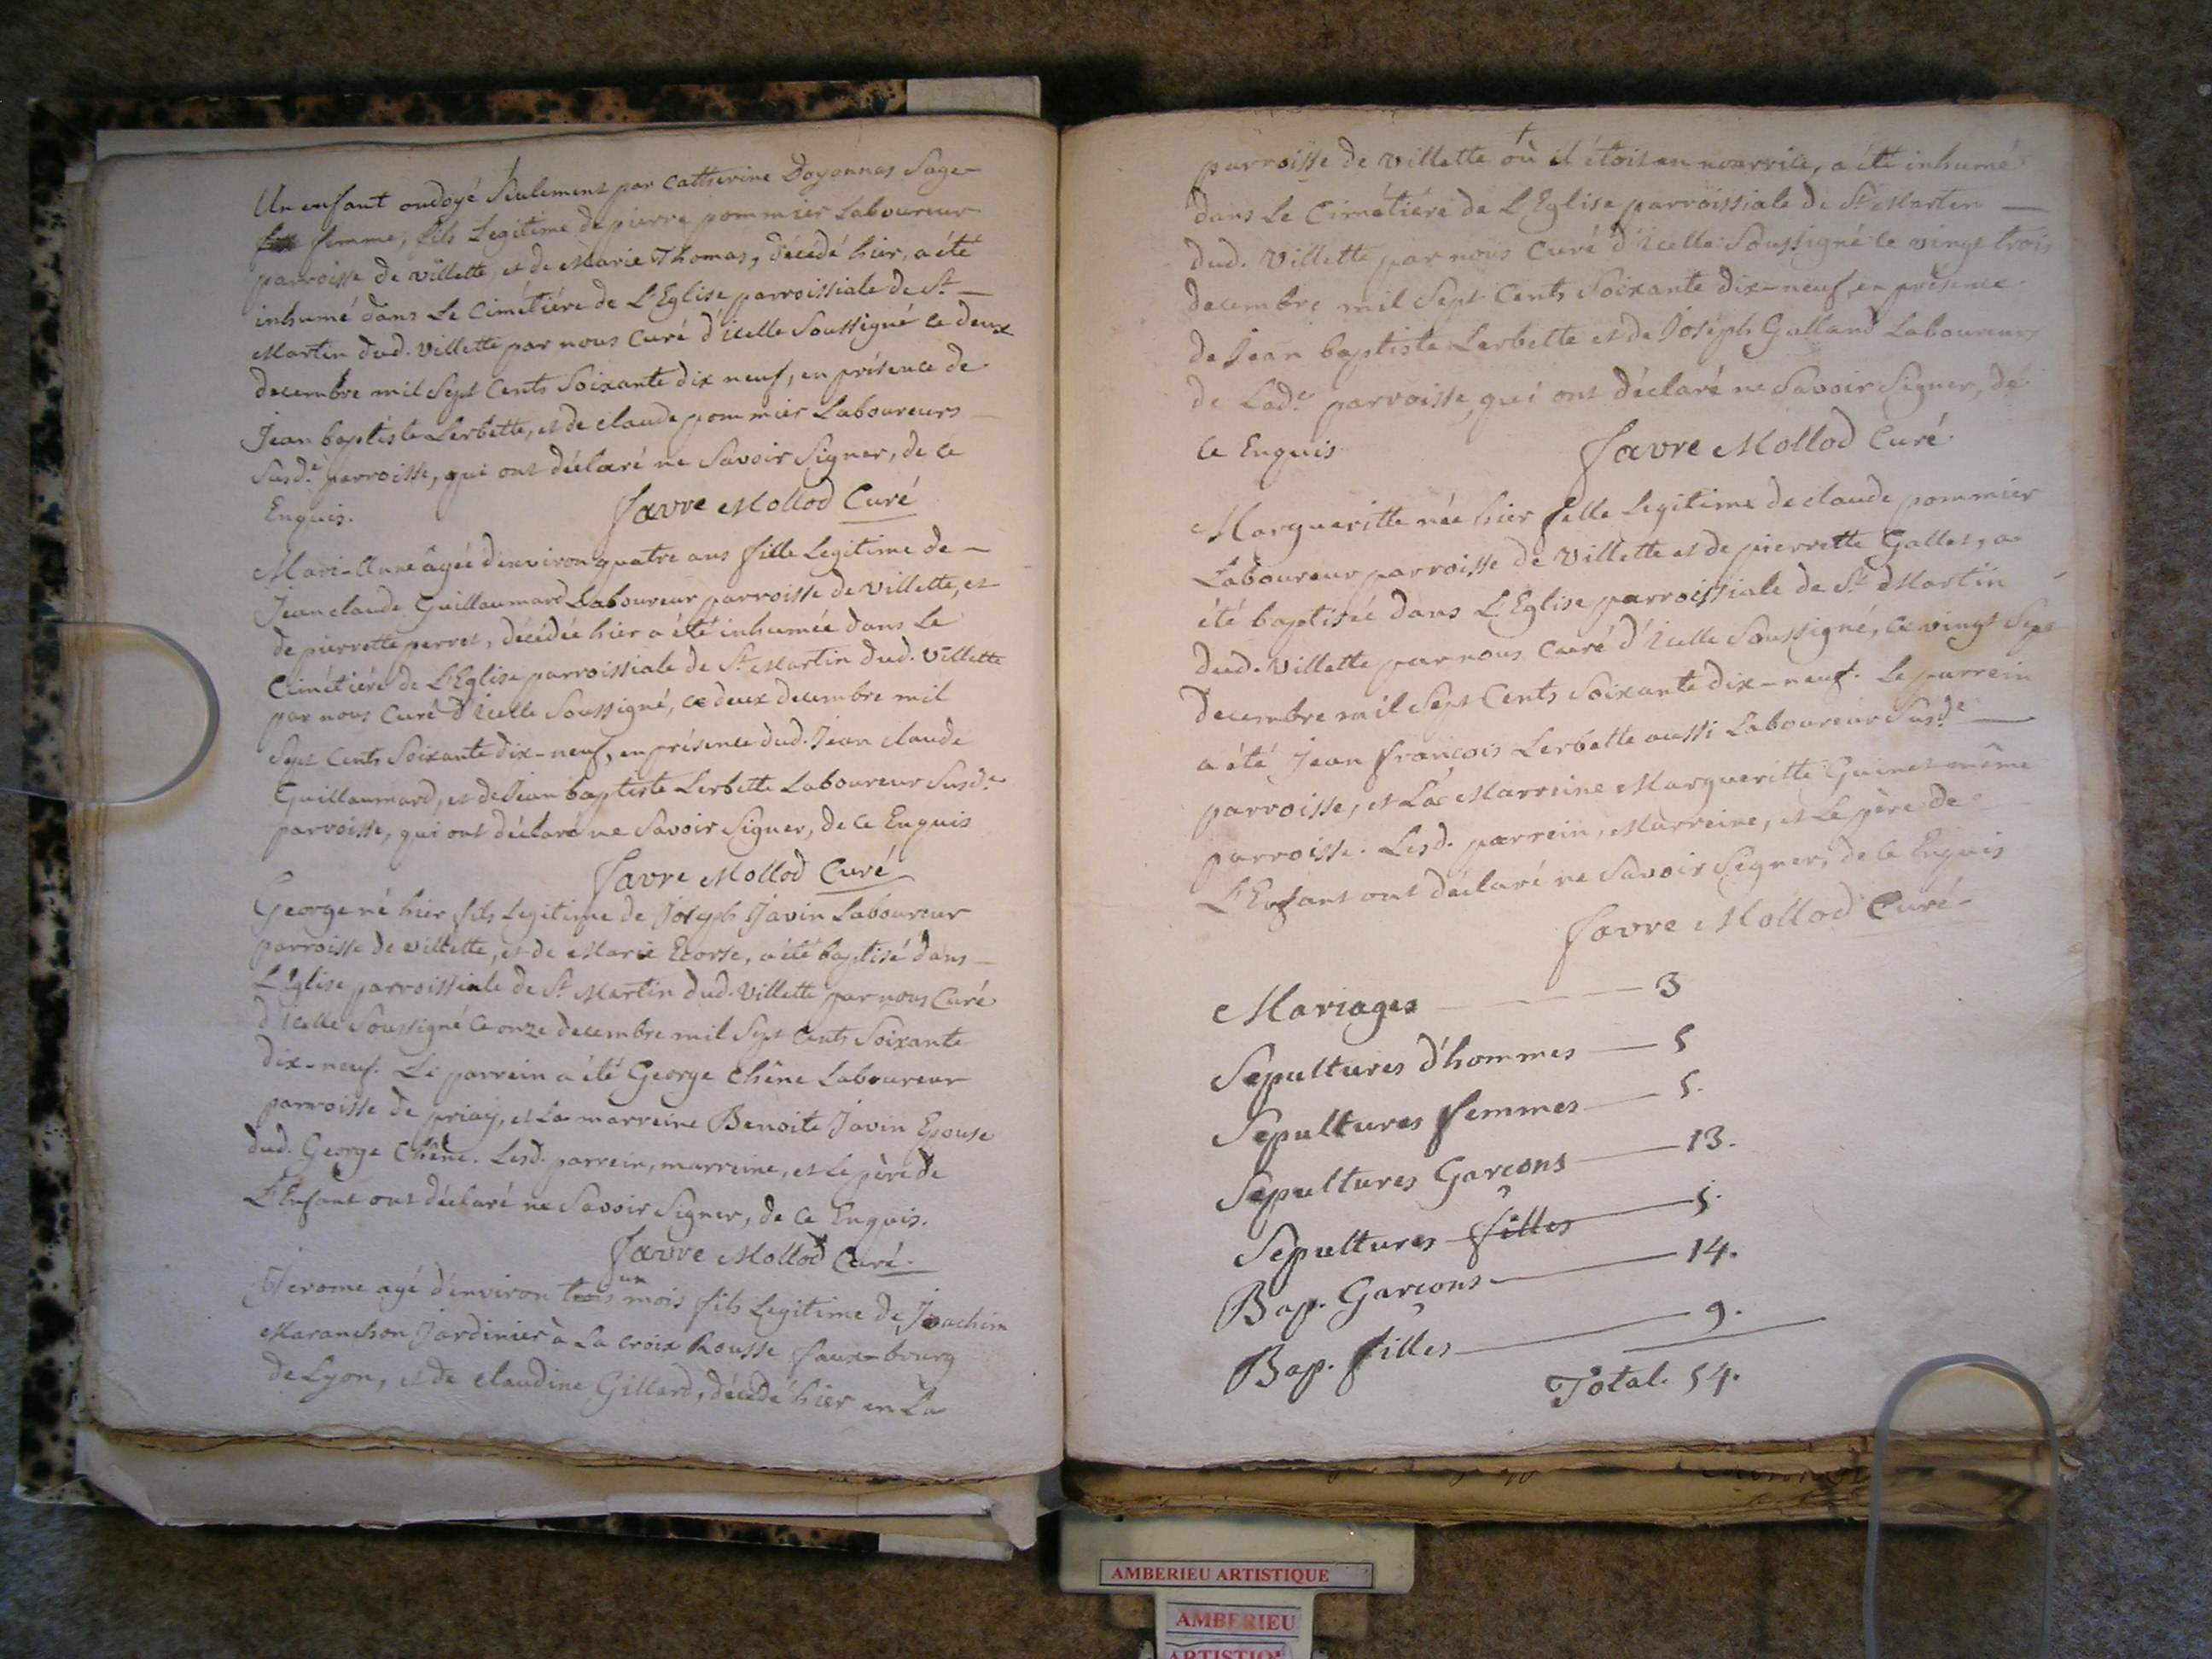 Un enfant ondoyé Seulement par Catherine Doyonnas Sage-
femme, fils Legitime de pierre pommier Laboureur
parroisse de villette, et de Marie Thomas, décédé hier, a été
inhumé dans Le Cimétiére de L'Eglise parroissiale de St. —
Martin dud. Villette par nous Curé d'icelle Soussigné ce deux
decembre mil Sept Cents Soixante dix neuf, en présence de
Jean baptiste Lerbette, et de claude pommier Laboureurs —
Susd.e parroisse, qui ont déclaré ne Savoir Signer, de ce
Enquis. Favre Mollod Curé
Mari-Anne âgée d'environ quatre ans fille Legitime de —
Jean claude Guillaumard Laboureur parroisse de villette, et
de pierrette perret, décédée hier a été inhumée dans Le
Cimétiére de L'Eglise parroissiale de St. Martin dud. Villette
par nous Curé d'icelle Soussigné, ce deux decembre mil
Sept Cents Soixante dix-neuf, en présence dud. Jean claude
Guillaumard, et de Jean baptiste Lerbette Laboureur Susd.e
parroisse, qui ont déclaré ne Savoir Signer, de ce Enquis
Favre Mollod Curé
George né hier fils Legitime de Joseph Javin Laboureur
parroisse de villette, et de Marie Ecorse, a été baptisé dans —
L'Eglise parroissiale de St. Martin dud. Villette par nous Curé
d'icelle Soussigné ce onze decembre mil Sept Cents Soixante
dix-neuf. Le parrein a été George Chêne Laboureur
parroisse de priay, et La marreine Benoite Javin Epouse
dud. George Chêne. Lesd. parrein, marreine, et Le père de
L'Enfant ont déclaré ne Savoir Signer, de ce Enquis.
Favre Mollod Curé.
un
Jerome agé d'environ trois mois fils Legitime de Joachim
Maranchon Jardinier à La croix Rousse faux-bourg
de Lyon, et de claudine Gillard, décédé hier en La
parroisse de villette où il étoit en nourrice, a été inhumé
dans Le Cimétiére de L'Eglise parroissiale de St. Martin —
dud. Villette par nous Curé d'icelle Soussigné ce vingt trois
decembre mil Sept Cents Soixante dix-neuf, en présence
de Jean baptiste Lerbette et de Joseph Galland Laboureurs
de Lad.e parroisse, qui ont déclaré ne Savoir Signer, de
ce Enquis Favre Mollod Curé
Margueritte née hier fille Legitime de claude pommier
Laboureur parroisse de Villette et de pierrette Gallet, a
été baptisée dans L'Eglise parroissiale de St. Martin
dud. Villette par nous Curé d'icelle Soussigné, ce vingt Sept
decembre mil Sept Cents Soixante dix-neuf. Le parrein
a été Jean françois Lerbette aussi Laboureur Susd.e —
parroisse, et La Marreine Margueritte Guinet même
parroisse. Lesd. parrein, Marreine, et Le père de
L'Enfant ont déclaré ne Savoir Signer, de ce Enquis
Favre Mollod Curé
Mariages — 3
Sepultures d'hommes — 5
Sepultures femmes — 5.
Sepultures Garçons — 13.
Sepultures filles — 5.
Bap. Garçons — 14.
Bap. filles — 9.
Total. 54.
AMBERIEU ARTISTIQUE
AMBERIEU